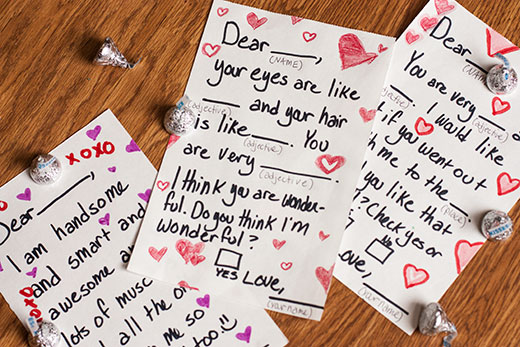 Dear ____,
(NAME)
your eyes are like
____ and your hair
(adjective)
is like ____. You
(adjective)
are very ____.
(adjective)
I think you are wonde-
ful. Do you think I'm
wonderful?
YES
Love,
(your name)
Dear ____,
(NAME)
You are very
I would like
if you went out
me to the ____.
(place)
you like that
? Check yes or
Love,
(your name)
XOXO
Dear ____,
I am handsome
and smart and
awesome
lots of musc
all the
me so
too. :)